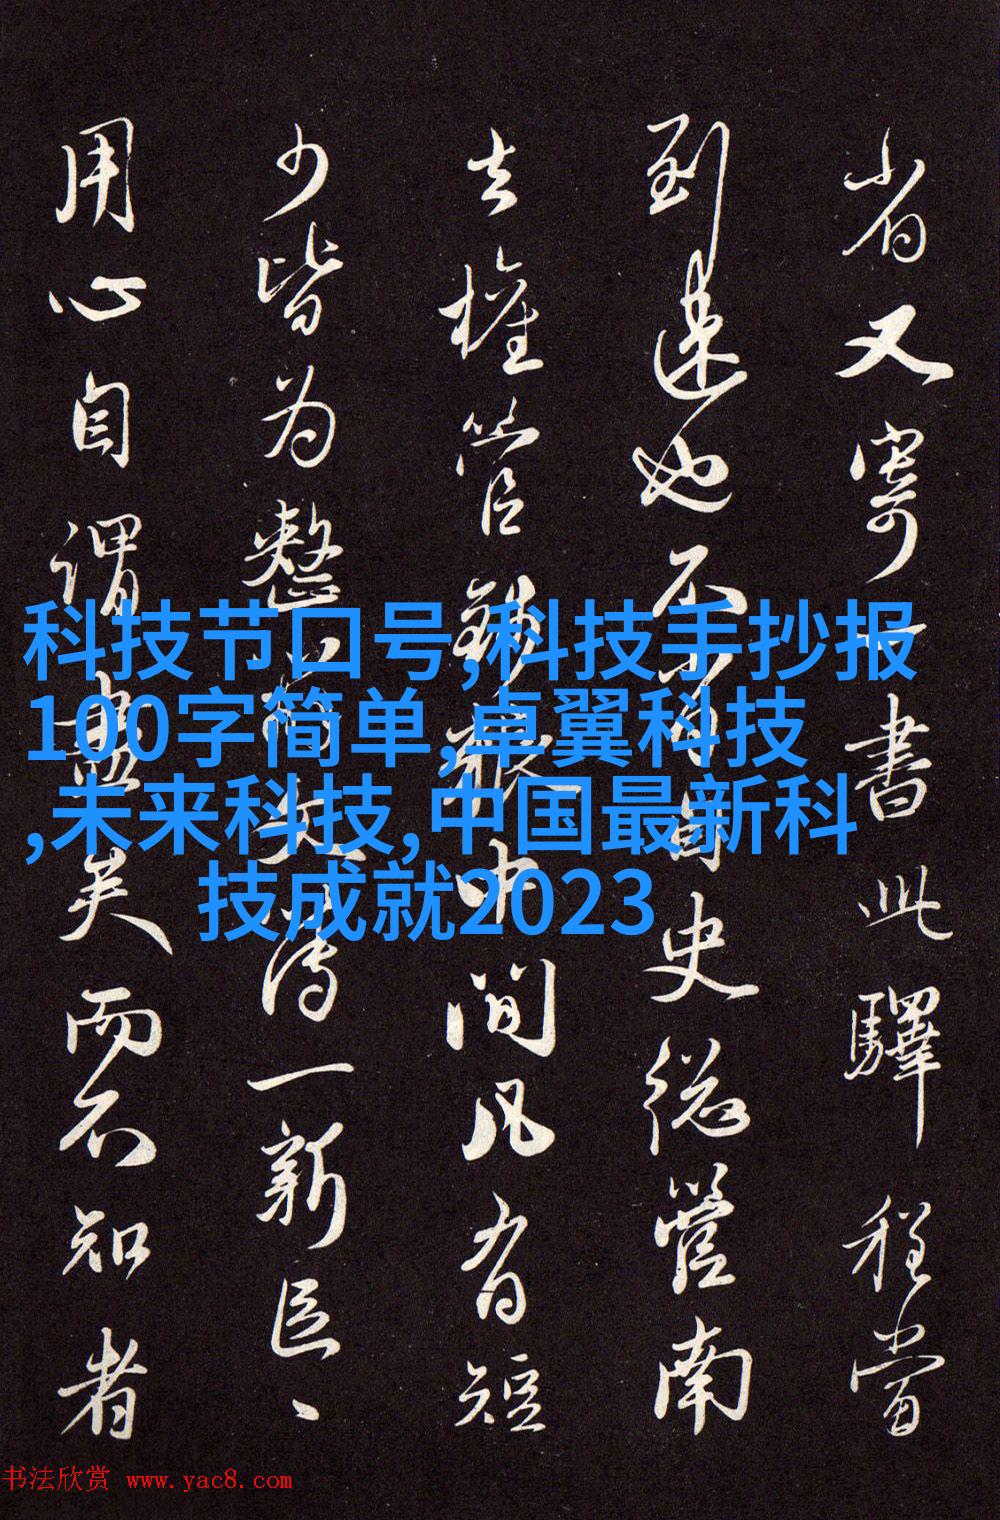 省又寄一書此驛程當
到速也不肖自史總管南
去權管錢糧中間凡有短
少皆為整文簿一新區〻
用心自謂盡矣而不知者
科技节口号,科技手抄报
100字简单,卓翼科技
,未来科技,中国最新科
技成就2023
书法欣赏 www.yac8.com